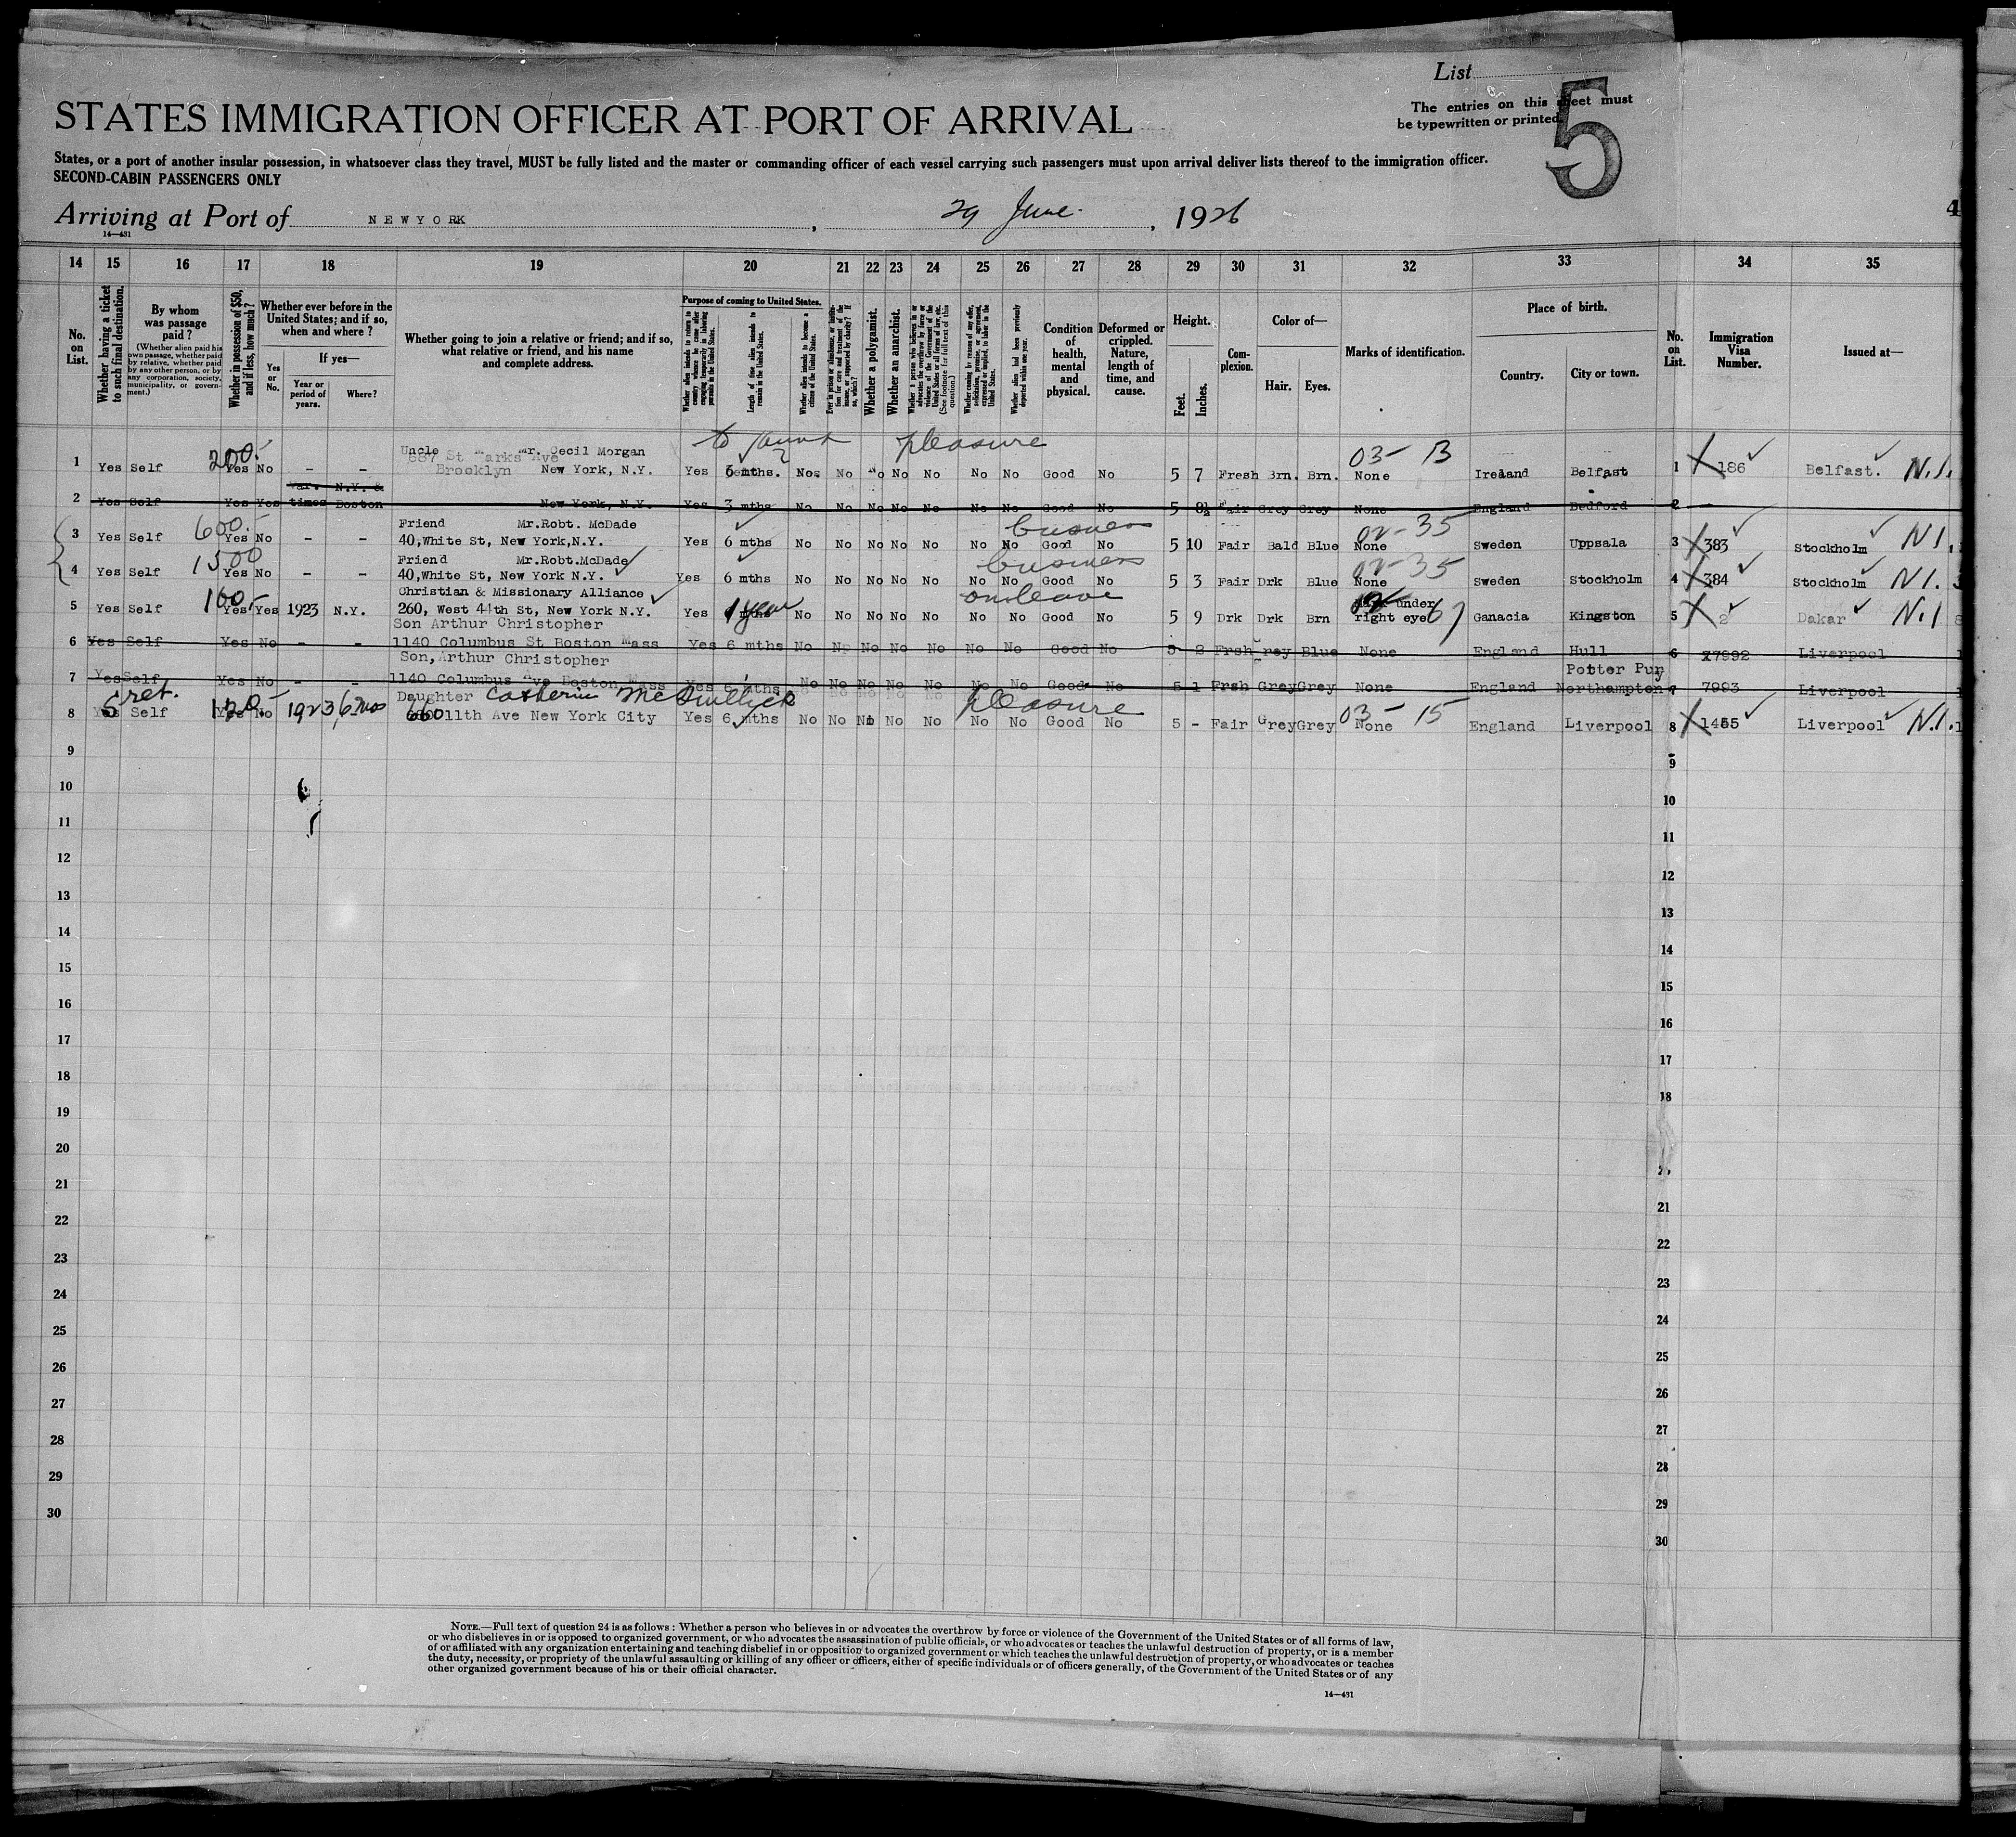 List
The entries on this sheet must
be typewritten or printed.
5
STATES IMMIGRATION OFFICER AT PORT OF ARRIVAL
States, or a port of another insular possession, in whatsoever class they travel, MUST be fully listed and the master or commanding officer of each vessel carrying such passengers must upon arrival deliver lists thereof to the immigration officer.
SECOND-CABIN PASSENGERS ONLY
Arriving at Port of NEWYORK, 29 June, 1926
14—431
4
14 15 16 17 18 19 20 21 22 23 24 25 26 27 28 29 30 31 32 33 34 35
No. on List.
Whether having a ticket to such final destination.
By whom was passage paid?
(Whether alien paid his own passage, whether paid by relative, whether paid by any other person, or by any corporation, society, municipality, or government.)
Whether in possession of $50, and if less, how much?
Whether ever before in the United States; and if so, when and where?
Yes or No.
If yes—
Year or period of years.
Where?
Whether going to join a relative or friend; and if so, what relative or friend, and his name and complete address.
Purpose of coming to United States.
Length of time alien intends to remain in the United States.
Whether alien intends to become a citizen of the United States.
Whether a polygamist.
Whether an anarchist.
(See footnote for full text of this question.)
Whether alien had been previously deported within one year.
Condition of health, mental and physical.
Deformed or crippled. Nature, length of time, and cause.
Height.
Feet. Inches.
Complexion.
Color of—
Hair. Eyes.
Marks of identification.
Place of birth.
Country. City or town.
No. on List.
Immigration Visa Number.
Issued at—
to aunt pleasure
200.- 03- B
Uncle Mr. Cecil Morgan
687 St Marks Ave
1 Yes Self Yes No - - Brooklyn New York, N.Y. Yes 6 mths. No No No No No No No Good No 5 7 Fresh Brn. Brn. None Ireland Belfast 1 186 Belfast. N.I.
N.Y. &
2 Yes Self Yes Yes times Boston New York, N.Y. Yes 3 mths No No No No No No No Good No 5 8½ Fair Grey Grey None England Bedford 2 -
600.- Friend Mr.Robt. McDade business 02-35
3 Yes Self Yes No - - 40,White St, New York,N.Y. Yes 6 mths No No No No No No No Good No 5 10 Fair Bald Blue None Sweden Uppsala 3 383 Stockholm N.I.
1500 Friend Mr.Robt.McDade business 02-35
4 Yes Self Yes No - - 40,White St, New York N.Y. Yes 6 mths No No No No No No No Good No 5 3 Fair Drk Blue None Sweden Stockholm 4 384 Stockholm N.I.
100.- Christian & Missionary Alliance 1 year on leave under
5 Yes Self Yes Yes 1923 N.Y. 260, West 44th St, New York N.Y. Yes mths No No No No No No No Good No 5 9 Drk Drk Brn right eye Ganacia Kingston 5 2 Dakar N.I
Son Arthur Christopher
6 Yes Self Yes No - - 1140 Columbus St Boston Mass Yes 6 mths No No No No No No No Good No 5 2 Frsh Grey Blue None England Hull 6 27992 Liverpool
Son, Arthur Christopher Potter Pury
7 Yes Self Yes No - - 1140 Columbus Ave Boston Mass Yes 6 mths No No No No No No No Good No 5 1 Frsh Grey Grey None England Northampton 7 7993 Liverpool
ret. 120.- 1923 6 mos Daughter Catherine pleasure 03-15
8 Yes Self Yes No 660 11th Ave New York City Yes 6 mths No No No No No No No Good No 5 - Fair Grey Grey None England Liverpool 8 1455 Liverpool N.I.
9 9
10 10
11 11
12 12
13 13
14 14
15 15
16 16
17 17
18 18
19
20
21 21
22 22
23 23
24 24
25 25
26 26
27 27
28 28
29 29
30 30
NOTE.—Full text of question 24 is as follows: Whether a person who believes in or advocates the overthrow by force or violence of the Government of the United States or of all forms of law,
or who disbelieves in or is opposed to organized government, or who advocates the assassination of public officials, or who advocates or teaches the unlawful destruction of property, or is a member
of or affiliated with any organization entertaining and teaching disbelief in or opposition to organized government or which teaches the unlawful destruction of property, or who advocates or teaches
the duty, necessity, or propriety of the unlawful assaulting or killing of any officer or officers, either of specific individuals or of officers generally, of the Government of the United States or of any
other organized government because of his or their official character.
14—431